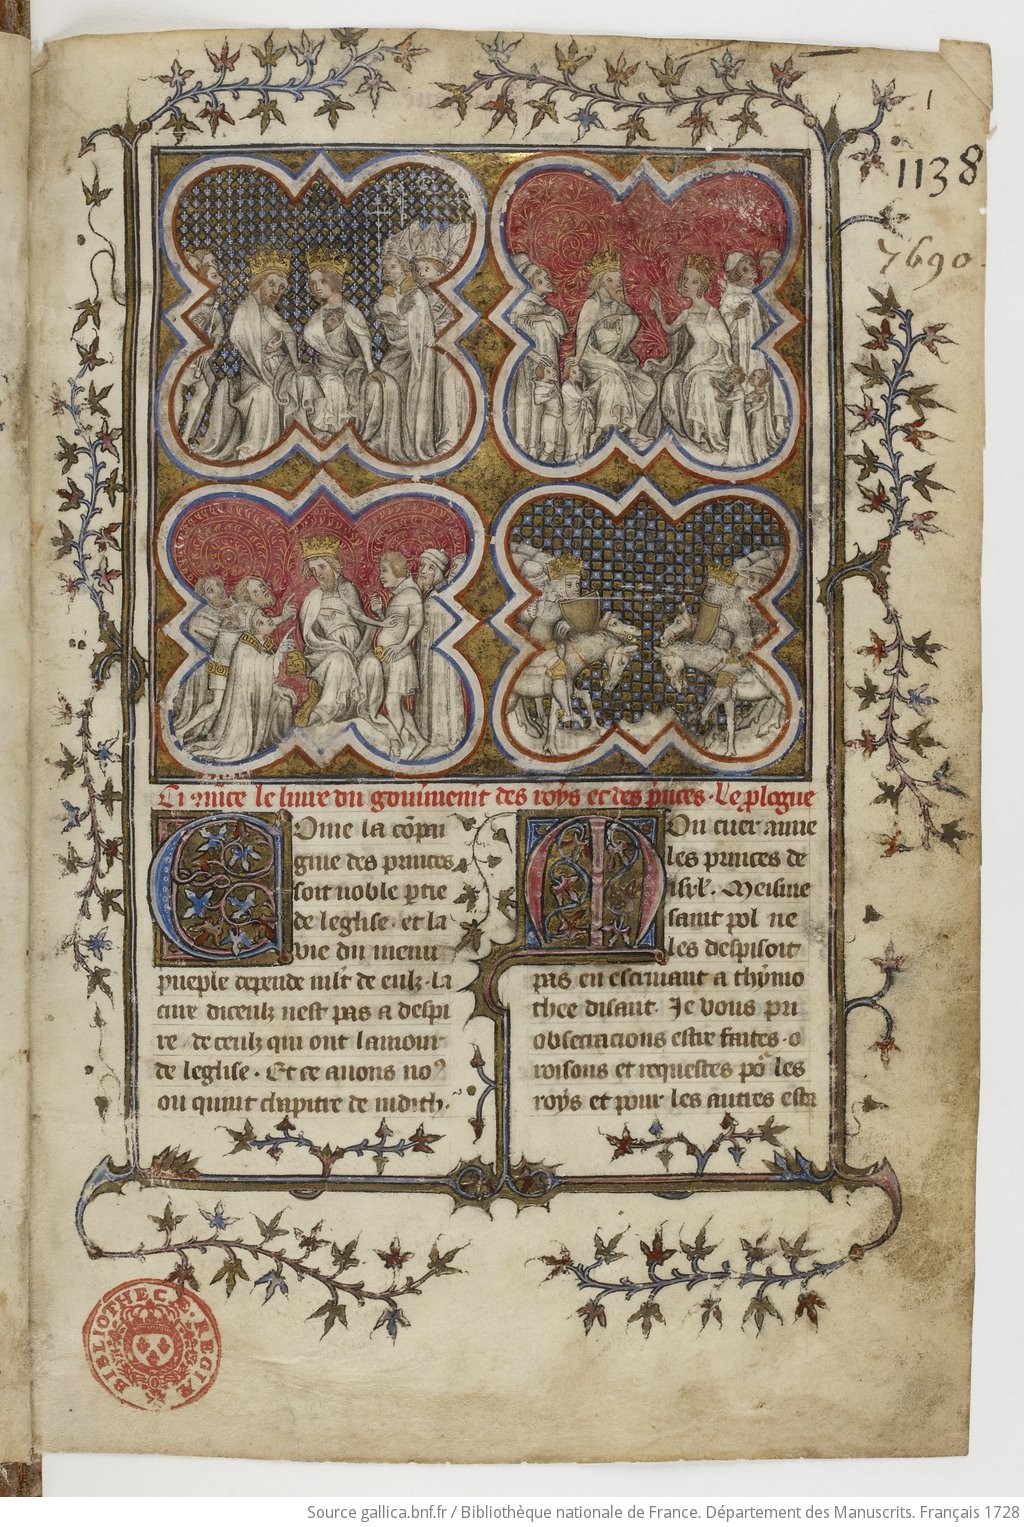 1
1138
7690.
Ci mīce le livre du gouv̄nemēt des roys et des p̄nces. Le p̄logue
Cōme la cōpai
gnie des princes
soit noble p̄tie
de leglise. et la
vie du menu
pueple depende ml̄t de eulz. la
cure diceulz nest pas a despi
re. de ceulz qui ont lamour
de leglise. Et ce avons noꝰ
ou quint chapitre de iudith.
Mon cuer aime
les princes de
isrl̄. Meisme
saint pol ne
les despisoit
pas en escrivant a thymo
thee disant. Je vous pri
obsecracions estre faites. o
roisons et requestes poʳ les
roys et pour les autres esta
BIBLIOTHECÆ REGIÆ
Source gallica.bnf.fr / Bibliothèque nationale de France. Département des Manuscrits. Français 1728